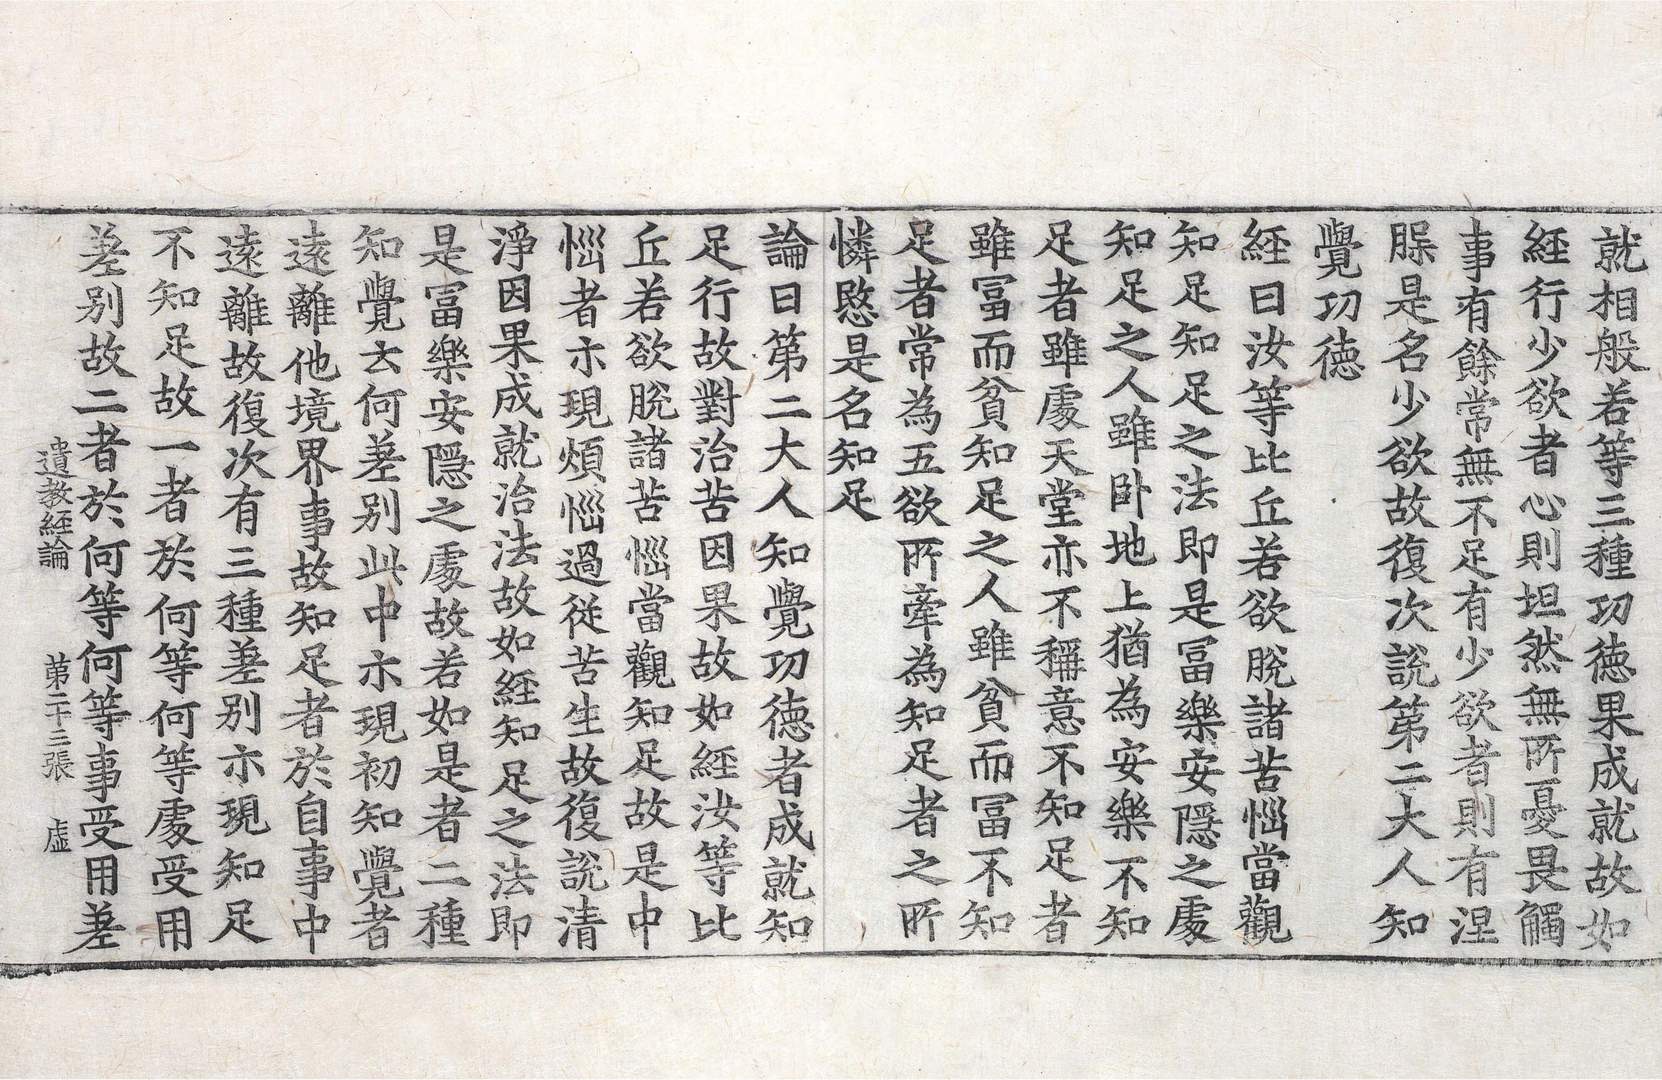 就相般若等三種㓛徳果成就故如
經行少欲者心則坦然無所憂畏觸
事有餘常無不足有少欲者則有涅
槃是名少欲故復次說第二大人知
覺㓛徳
經曰汝等比丘若欲脫諸苦惱當觀
知足知足之法即是冨樂安隱之處
知足之人雖卧地上猶為安樂不知
足者雖處天堂亦不稱意不知足者
雖冨而貧知足之人雖貧而冨不知
足者常為五欲所牽為知足者之所
憐愍是名知足
論曰第二大人知覺㓛徳者成就知
足行故對治苦因果故如經汝等比
丘若欲脫諸苦惱當觀知足故是中
惱者示現煩惱過從苦生故復說清
淨因果成就治法故如經知足之法即
是冨樂安隱之處故若如是者二種
知覺云何差别此中示現初知覺者
遠離他境界事故知足者於自事中
遠離故復次有三種差别示現知足
不知足故一者於何等何等處受用
差别故二者於何等何等事受用差
遺教經論 第二十三張 虛